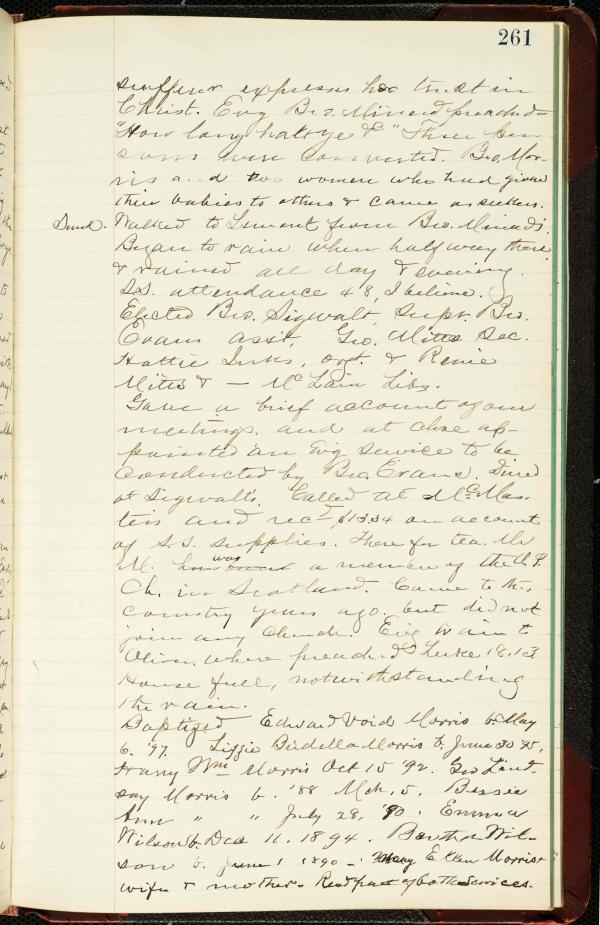 261
sufferer expresses her trust in
Christ. Evg Bro. Minerd preached –
"How long halt ye &c" Three per
sons were converted. Bro. Mor-
ris and two women who had given
their babies to others & came as seekers.
Walked to Lemont from Bro. Minerd's.
Began to rain when half way there
& rained all day & evening.
S.S. attendance 48, I believe.
Elected Bro. Sigwalt Supt. Bro.
Evans asst, Geo. Mitts Sec.
Hattie Inks, orgt. & Renie
Mitts & — McLain Libs.
Gave a brief account of our
meetings. and at close ap-
pointed an Evg service to be
conducted by Bro. Evans. Dined
at Sigwalts. Called at McMas-
ters and recd $13.34 on account
of S.S. supplies. There for tea. Mr
M. was a member of the U.P.
Ch. in Scotland. Came to this
country years ago. but did not
join any church. Evg train to
Oliver, where preached Luke 18.13
House full, notwithstanding
the rain.
Baptized Edward Void Morris b. May
6. '97. Lizzie Birdella Morris b. June 30 '95,
Harry Wm Morris Oct 15 '92. Geo Lind-
say Morris b. '88 Mch. 5. Bessie
Ann " " July 28, '90. Emma
Wilson b. Dec 11. 1894. Bertha Wil-
son b. June 1 1890 – Mary Ellen Morris
wife & mother. Read part of both Services.